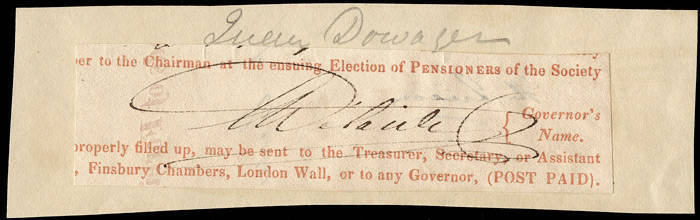 Queen Dowager
er to the Chairman at the ensuing Election of PENSIONERS of the Society
Adelaide
{ Governor's
Name.
properly filled up, may be sent to the Treasurer, Secretary, or Assistant
, Finsbury Chambers, London Wall, or to any Governor, (POST PAID).